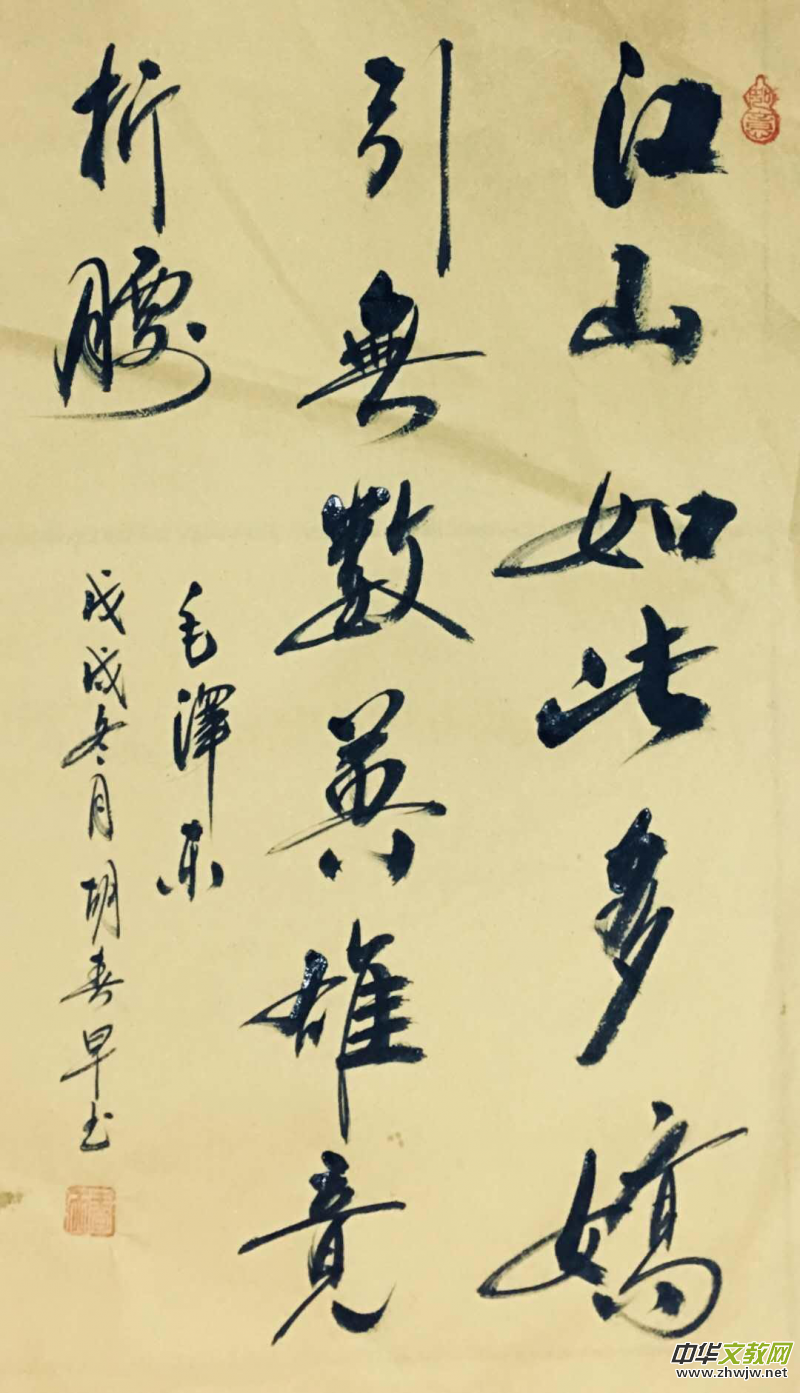 江山如此多嬌
引無數英雄竟
折腰
毛澤东
戊戌冬月胡春早书
中华文教网
www.zhwjw.net